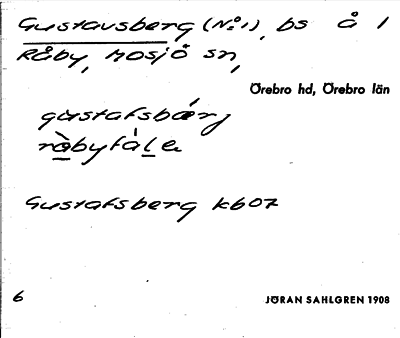 Gustavsberg (No 1), bs å 1
Råby, Mosjö sn,
Örebro hd, Örebro län
gùstafsbærj
ràbyfàLa
Gustafsberg kb07
6
JÖRAN SAHLGREN 1908